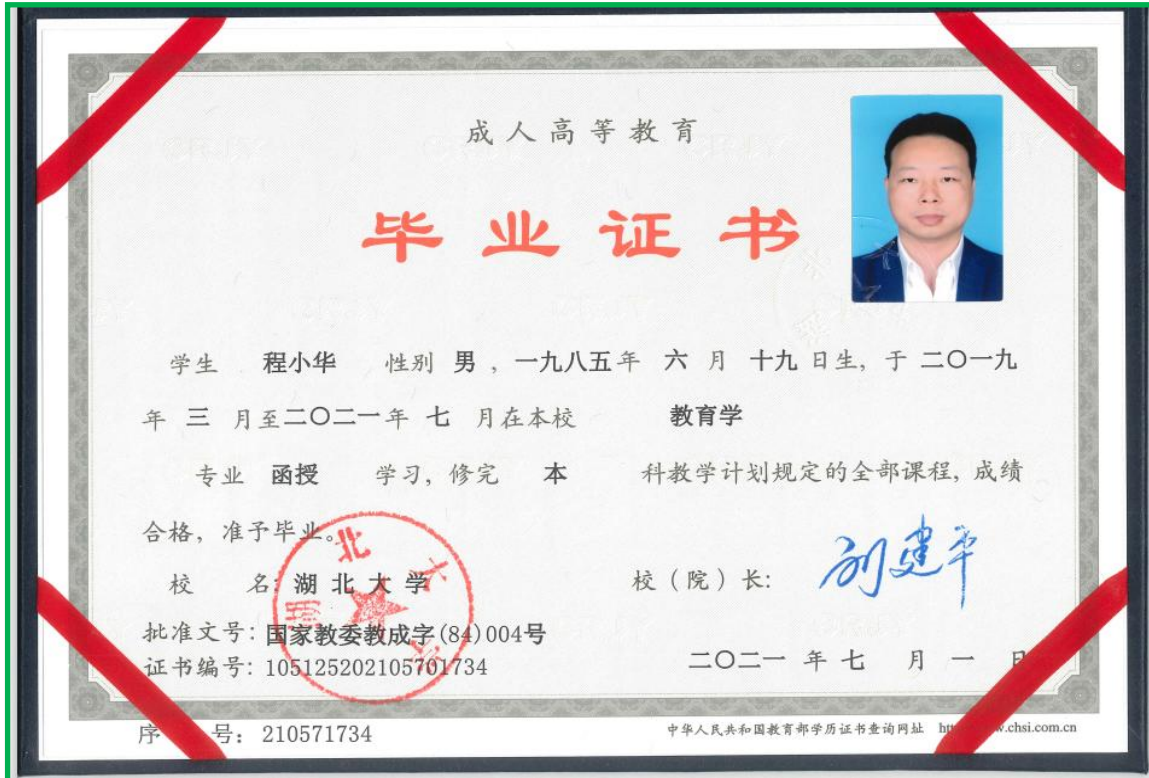 成人高等教育
毕业证书
学生 程小华 性别 男 , 一九八五年 六 月 十九 日生, 于 二〇一九
年 三 月至二〇二一年 七 月在本校 教育学
专业 函授 学习, 修完 本 科教学计划规定的全部课程, 成绩
合格, 准予毕业。
校 名: 湖北大学
校（院）长: 刘建平
批准文号: 国家教委教成字(84)004号
证书编号: 105125202105701734
二〇二一 年 七 月 一 日
序 号: 210571734
中华人民共和国教育部学历证书查询网址 .chsi.com.cn
湖北大学